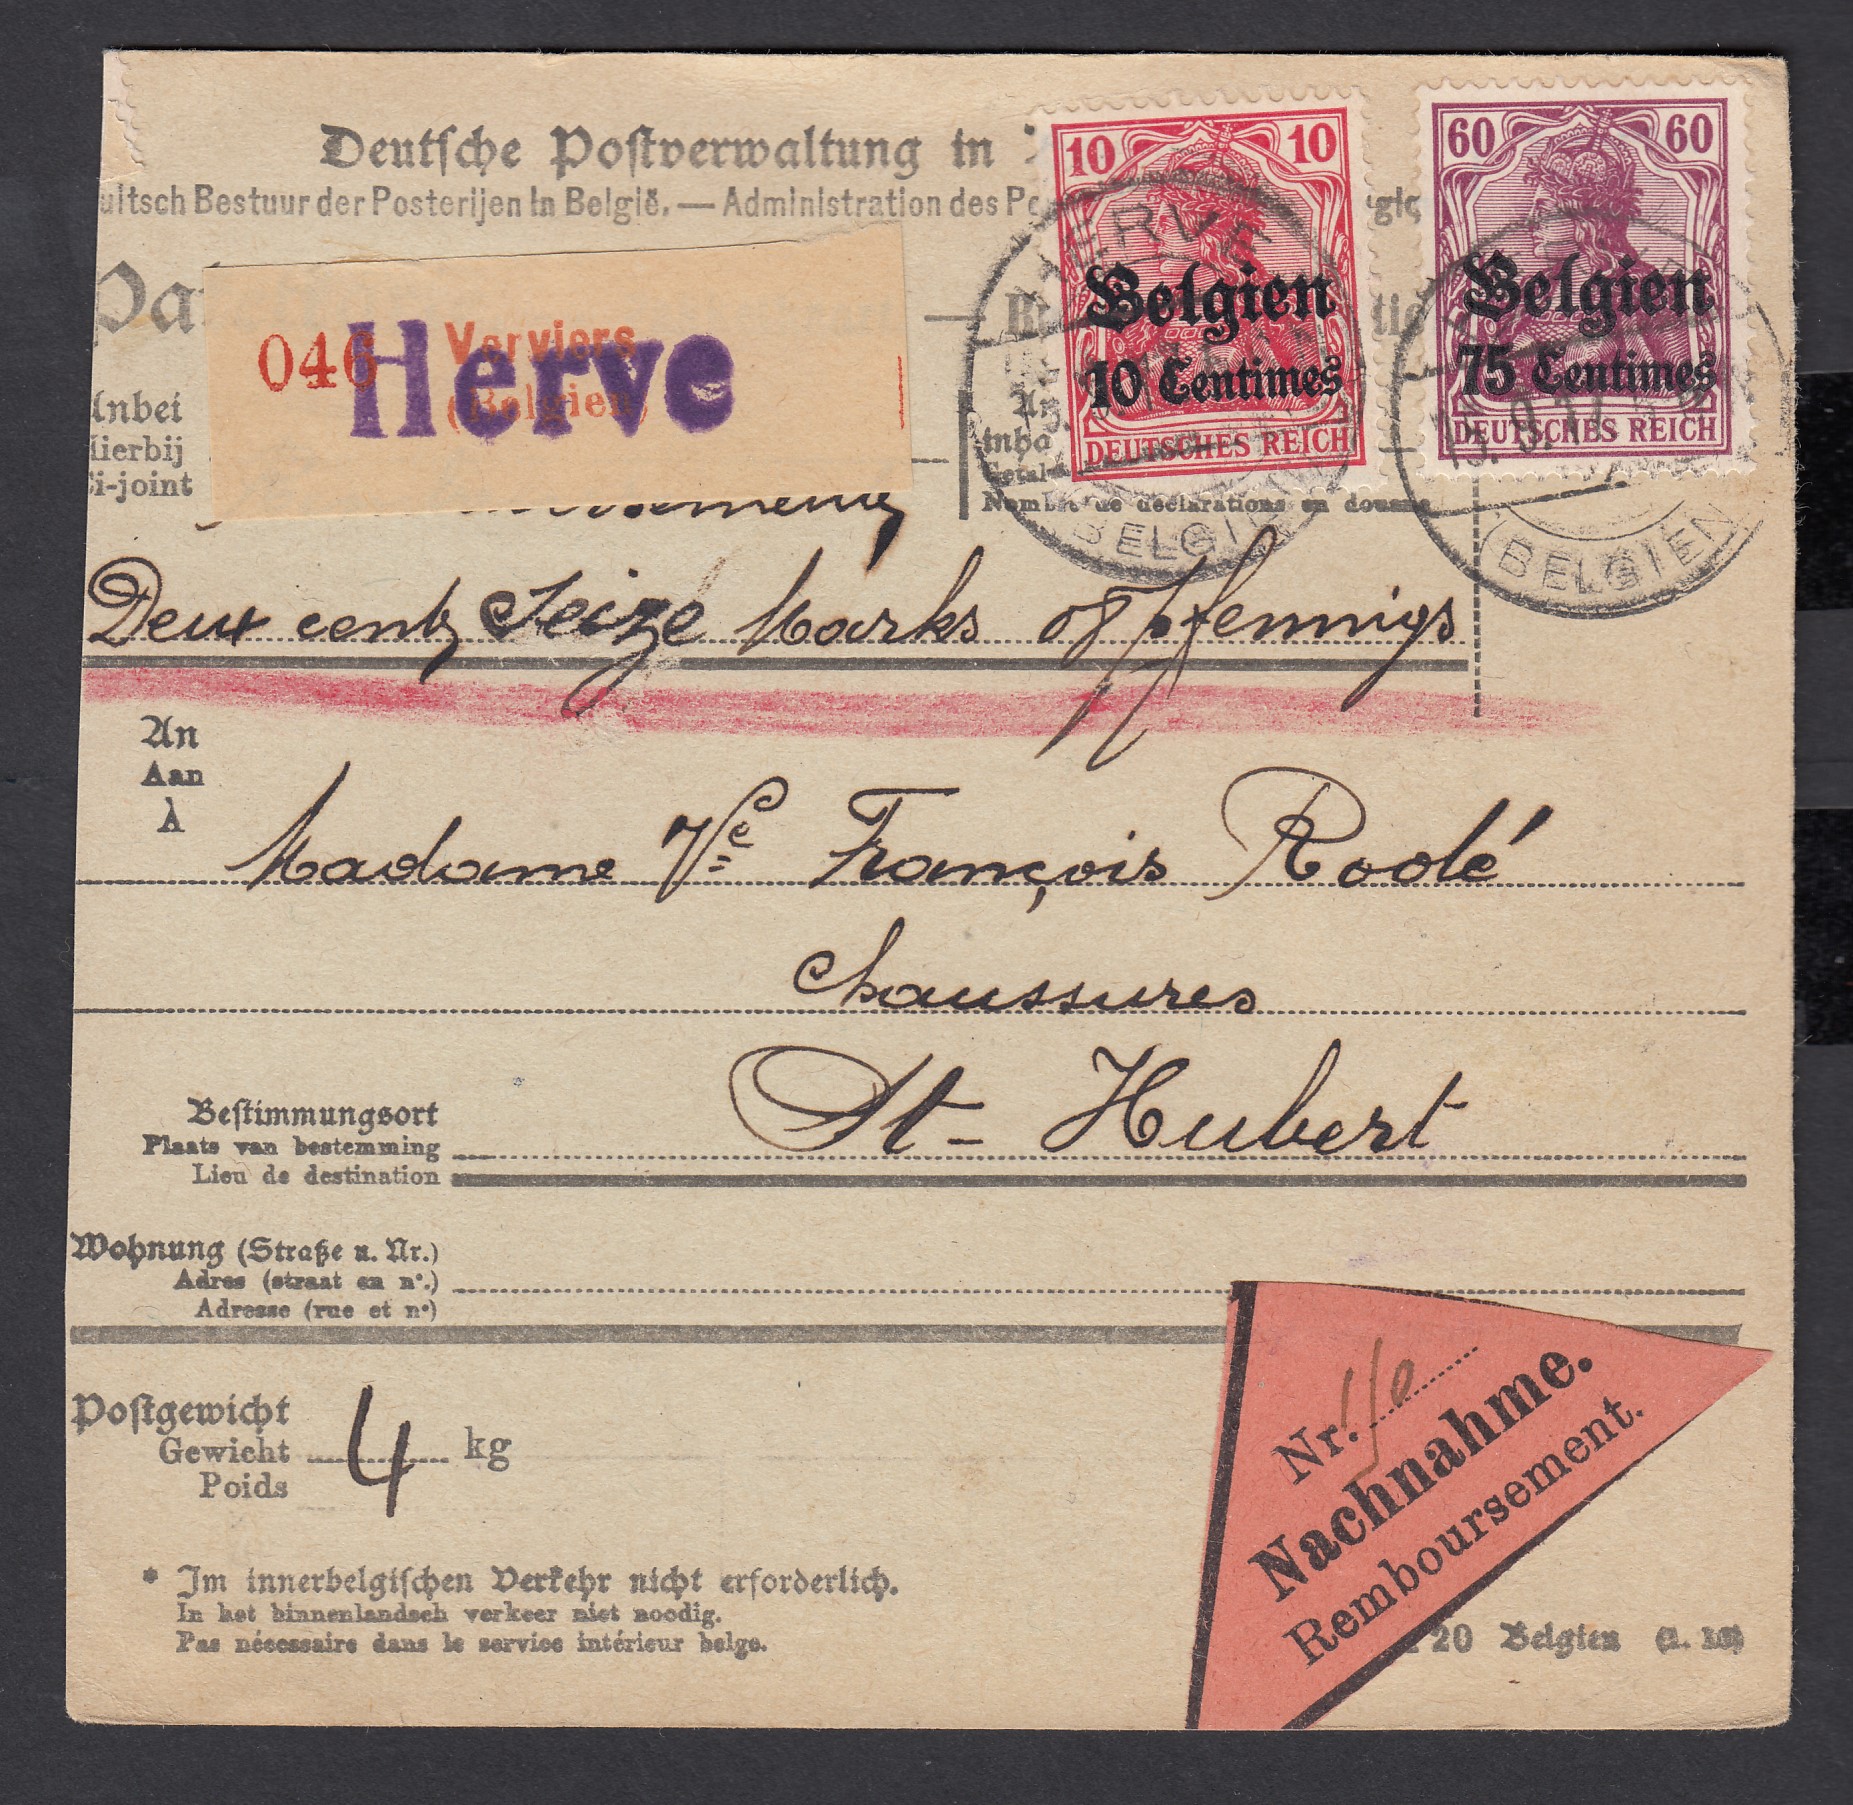 Deutsche Postverwaltung in
uitsch Bestuur der Posterijen in België. — Administration des Po
10 10
Belgien
10 Centimes
DEUTSCHES REICH
60 60
Belgien
75 Centimes
DEUTSCHES REICH
HERVE
(BELGIEN)
15.9.17
(BELGIEN)
046 Verviers
(Belgien)
Herve
Anbei
Hierbij
Ci-joint
inho
Getal
Nombre de déclarations en douane
Deux cents Seize Marks 07 pfennigs
An
Aan
À
Madame Ve François Rodé
Chaussures
Bestimmungsort
Plaats van bestemming
Lieu de destination
St-Hubert
Wohnung (Straße u. Nr.)
Adres (straat en n°.)
Adresse (rue et n°)
Postgewicht
Gewicht 4 kg
Poids
Nr.
Nachnahme.
Remboursement.
* Im innerbelgischen Verkehr nicht erforderlich.
In het binnenlandsch verkeer niet noodig.
Pas nécessaire dans le service intérieur belge.
20 Belgien